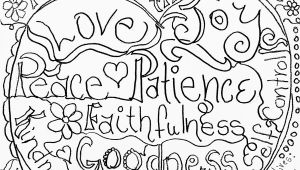 Love Joy
Peace Patience
Faithfulness
Kind
Goodness
Self Control